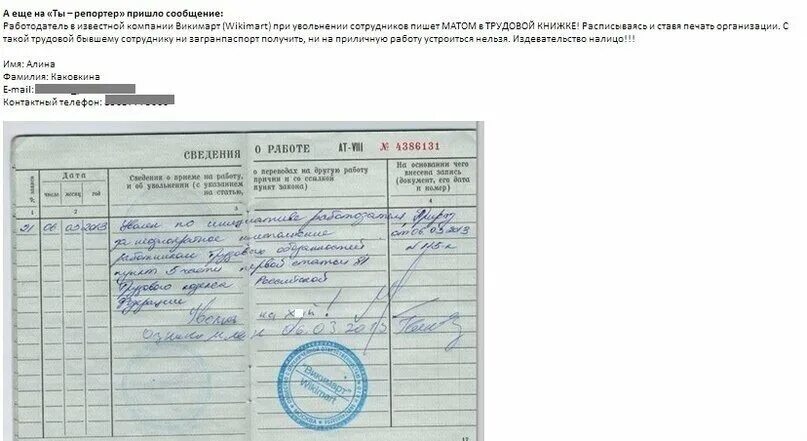 А еще на «Ты – репортер» пришло сообщение:
Работодатель в известной компании Викимарт (Wikimart) при увольнении сотрудников пишет МАТОМ в ТРУДОВОЙ КНИЖКЕ! Расписываясь и ставя печать организации. С
такой трудовой бывшему сотруднику ни загранпаспорт получить, ни на приличную работу устроиться нельзя. Издевательство налицо!!!
Имя: Алина
Фамилия: Каковкина
E-mail:
Контактный телефон:
СВЕДЕНИЯ О РАБОТЕ АТ-VIII № 4386131
№ записи
Дата
число месяц год
Сведения о приеме на работу, о переводах на другую работу
и об увольнении (с указанием причин и со ссылкой
на статью, пункт закона)
На основании чего
внесена запись
(документ, его дата
и номер)
1 2 3 4
21 06 03 2013 Уволен по инициативе работодателя
за неоднократное неисполнение от 06 03 2013
работником трудовых обязанностей
пункт 5 части первой статьи 81
Трудового кодекса Российской
Федерации
на х й!
06.03.2013
"Викимарт"
Wikimart
МОСКВА
17